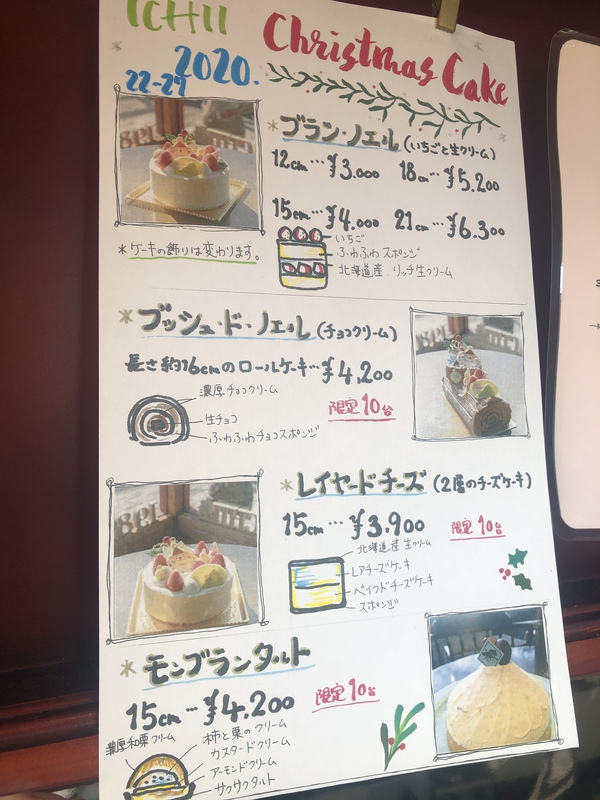 ICHII
Christmas Cake
2020.
22-27
*ブラン・ノエル(いちごと生クリーム)
12cm…¥3.000 18cm…¥5.200
15cm…¥4.000 21cm…¥6.300
いちご
ふわふわスポンジ
北海道産 リッチ生クリーム
*ケーキの飾りは変わります。
*ブッシュ・ド・ノエル(チョコクリーム)
長さ約16cmのロールケーキ…¥4,200
限定10台
濃厚チョコクリーム
生チョコ
ふわふわチョコスポンジ
*レイヤードチーズ(2層のチーズケーキ)
15cm…¥3.900 限定10台
北海道産生クリーム
レアチーズケーキ
ベイクドチーズケーキ
スポンジ
*モンブランタルト
15cm…¥4.200 限定10台
濃厚和栗クリーム
柿と栗のクリーム
カスタードクリーム
アーモンドクリーム
サクサクタルト